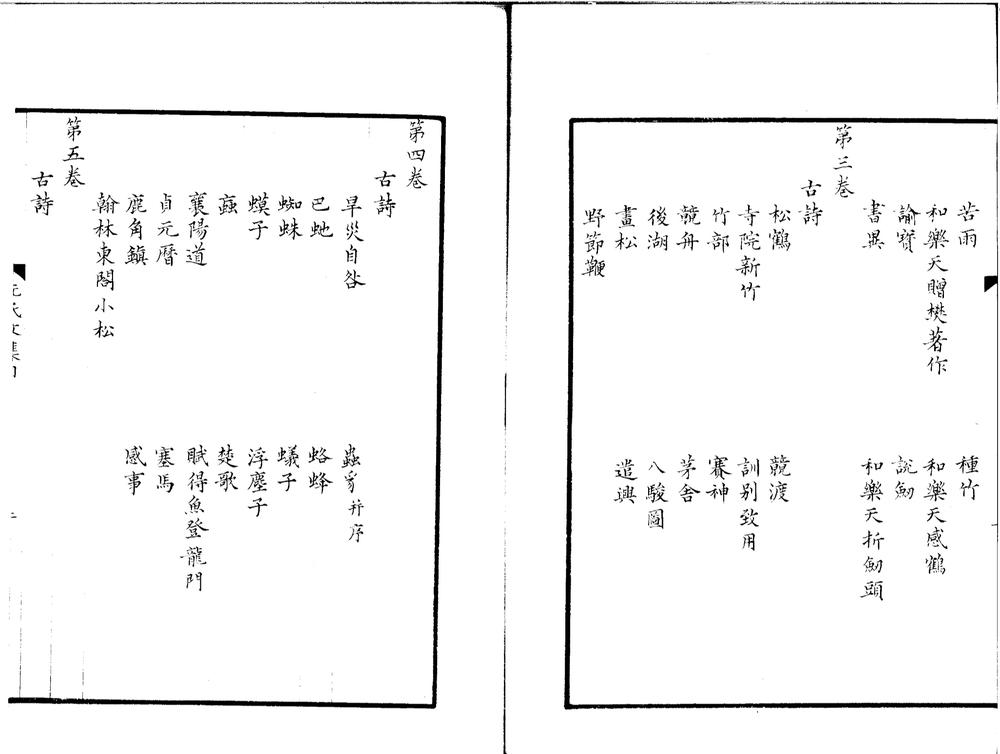 苦雨　種竹
和樂天贈樊著作　和樂天感鶴
諭寶　說劒
書異　和樂天折劒頭
第三卷
古詩
松鶴　競渡
寺院新竹　訓別致用
竹部　賽神
競舟　茅舍
後湖　八駿圖
畫松　遣興
野節鞭
第四卷
古詩
旱災自咎　蟲豸并序
巴虵　蛒蜂
蜘蛛　蟻子
蟆子　浮塵子
蝱　楚歌
襄陽道　賦得魚登龍門
貞元曆　塞馬
鹿角鎮　感事
翰林東閣小松
第五卷
古詩
元氏文集目